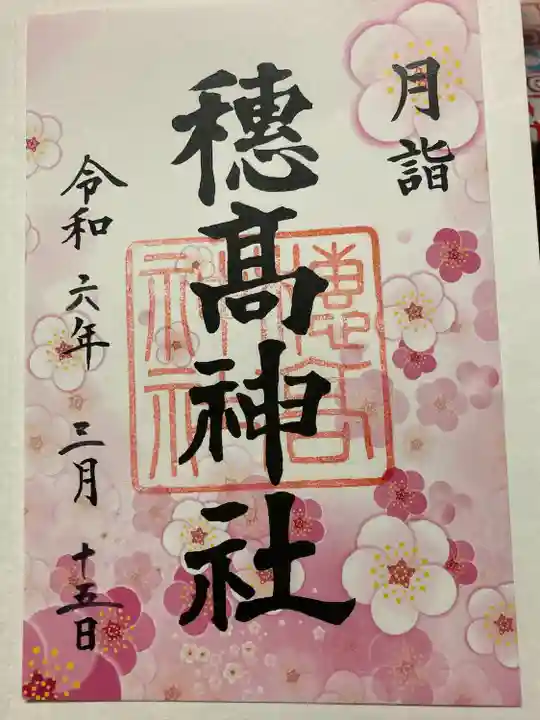 月詣
穂髙神社
穂高神社
令和六年三月十五日